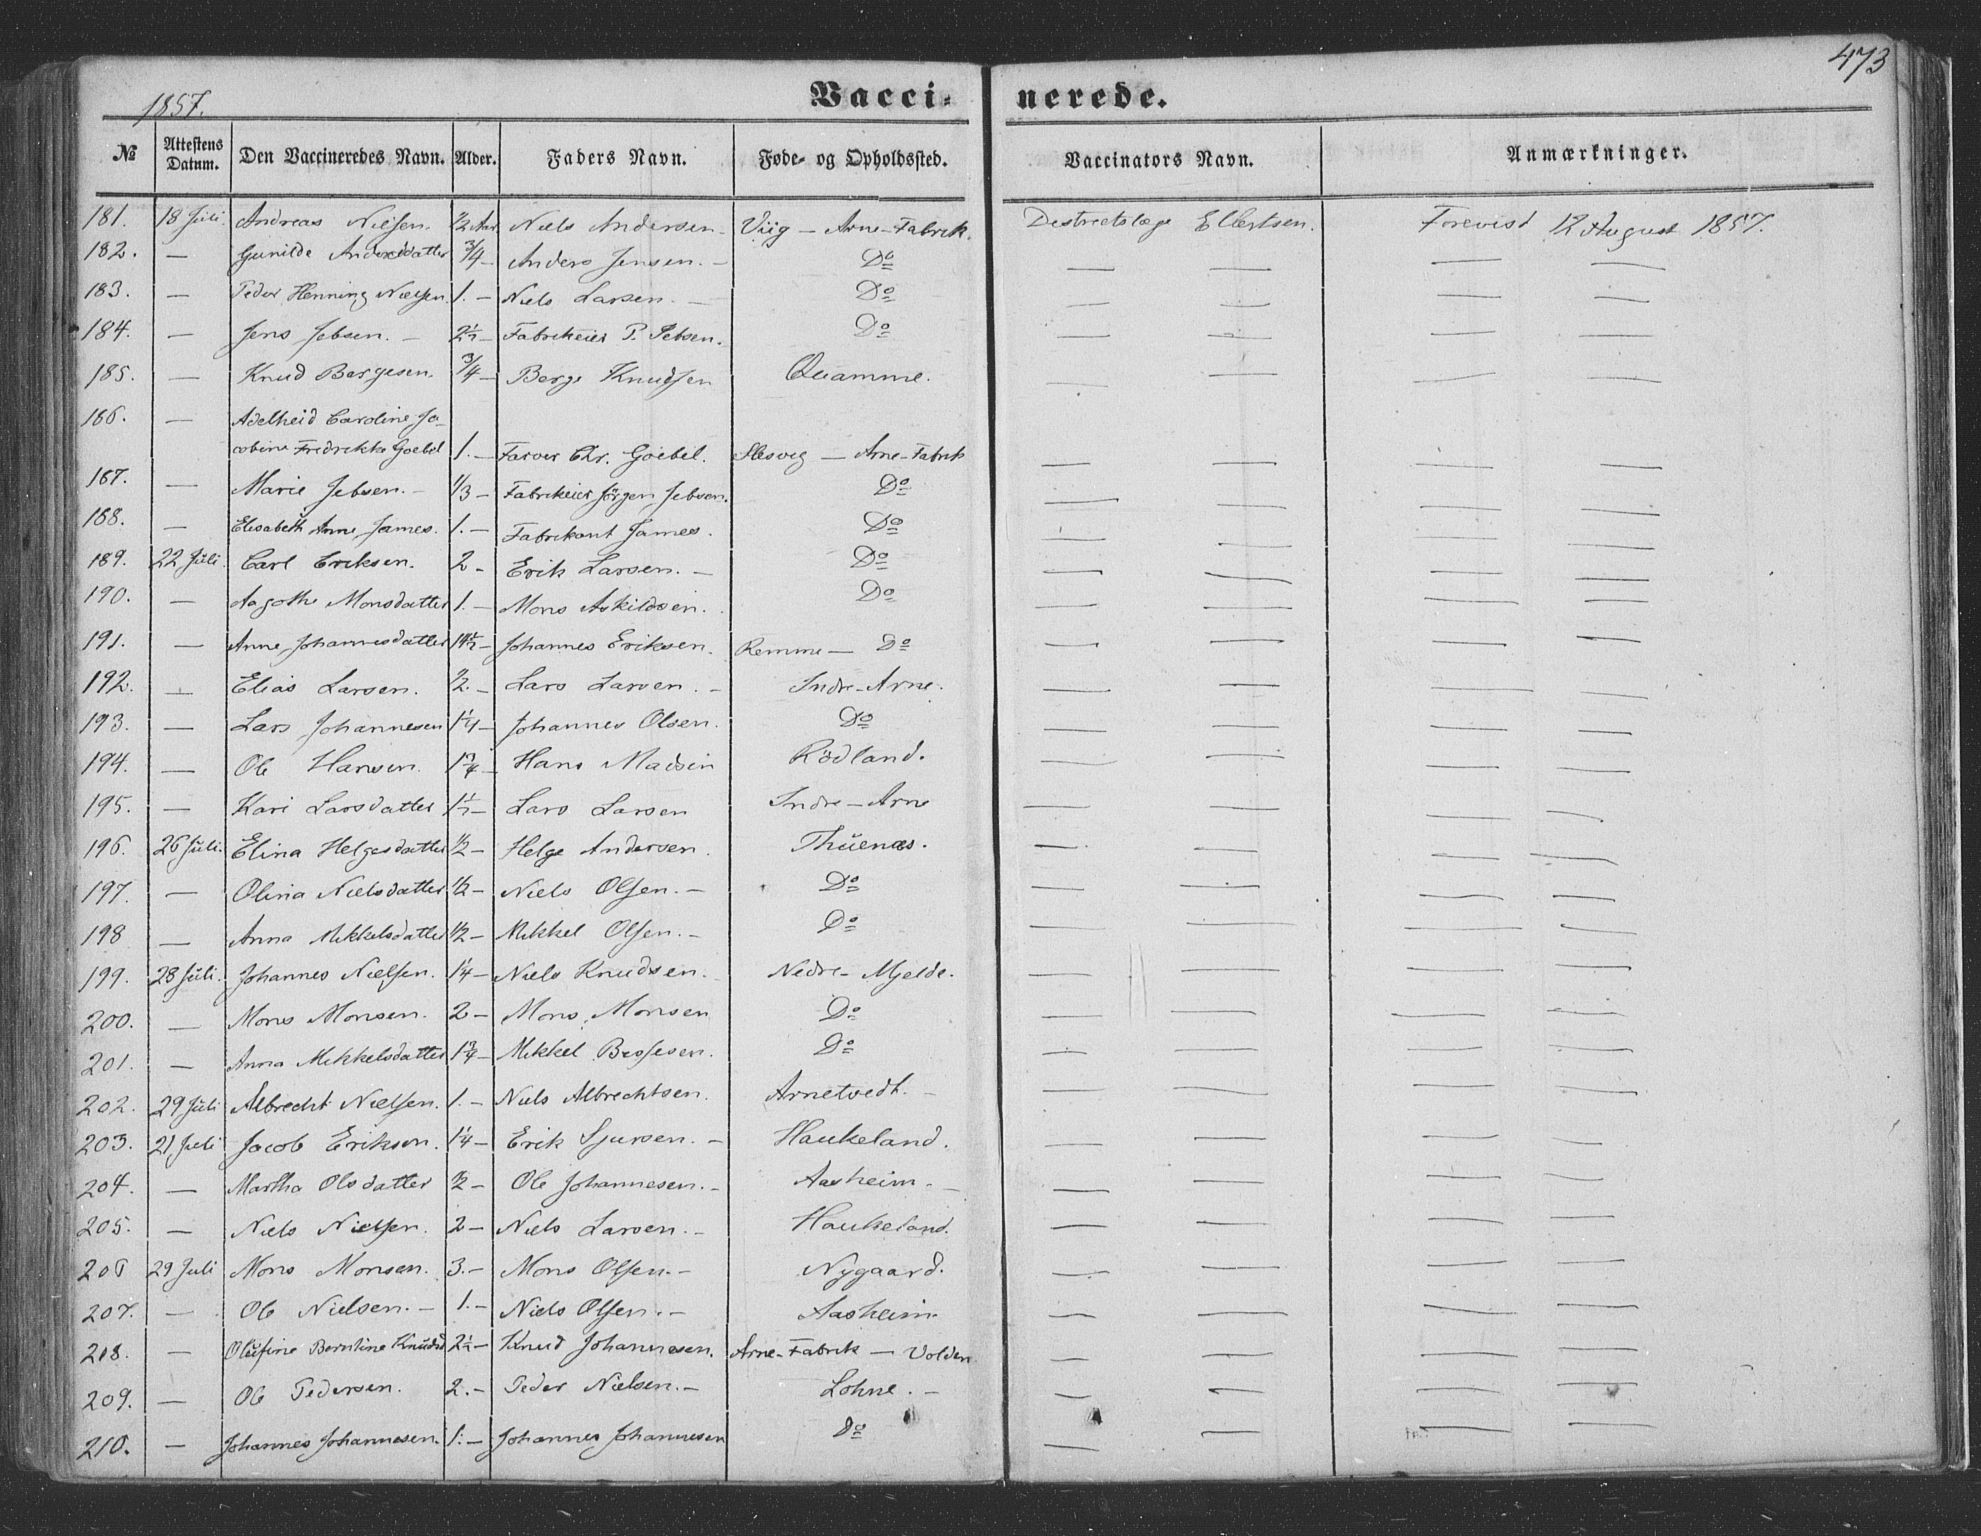 473
1857.
Vacci-nerede.
№ Attestens Datum. Den Vaccineredes Navn. Alder. Faders Navn. Føde- og Opholdssted. Vaccinators Navn. Anmærkninger.
181. 18 Juli. Andreas Nielsen. 1/2 Aar Niels Andersen — Viig — Arne-Fabrik. Destrictslæge Ellertsen. Forevist 12 August 1857.
182. — Gunilde Andersdatter 3/4 — Anders Jensen. — Do — — — —
183. — Peder Henning Nielsen. 1. — Niels Larsen. — Do — — — —
184. — Jens Jebsen. — 2 1/2 — Fabrikeier P. Jebsen. Do — — — —
185. — Knud Børgesen. 3/4 — Børge Knudsen Quamme. — — — —
186. — Adelheid Caroline Ja-
cobine Fredrikke Goebel 1. — Farver Chr. Goebel. Slesvig — Arne-Fabrik — — — —
187. — Marie Jebsen. — 1/3 — Fabrikeier Jörgen Jebsen. Do — — — —
188. — Elisabeth Anne James. 1. — Fabrikant James. Do — — — —
189. 22 Juli. Carl Eriksen. 2 — Erik Larsen. — Do — — — —
190. — Aagothe Monsdatter 1. — Mons Askildsen. Do — — — —
191. — Anne Johannesdatter — Johannes Eriksen. Remme — Do — — — —
192. — Elias Larsen. 1/2. — Lars Larsen. — Indre-Arne. — — — —
193. — Lars Johannesen 1 1/4 — Johannes Olsen. Do — — — —
194. — Ole Hansen. 1 3/4 — Hans Madsen Rödland. — — — —
195. — Kari Larsdatter 1 1/2 — Lars Larsen Indre-Arne — — — —
196. 26 Juli. Elina Helgesdatter 1/2 — Helge Andersen. Thuenæs. — — — —
197. — Olina Nielsdatter 1/2 — Niels Olsen. — Do — — — —
198 — Anna Mikkelsdatter 1/2 — Mikkel Olsen. — Do — — — —
199. 28 Juli. Johannes Nielsen. 1 1/4 — Niels Knudsen. Nedre-Mjelde. — — — —
200. — Mons Monsen. 2 — Mons Monsen Do — — — —
201. — Anna Mikkelsdatter 1 3/4 — Mikkel Do — — — —
202. 29 Juli Albrecht Nielsen. 1. — Niels Albrechtsen. Arnetvedt. — — — — —
203. 21 Juli Jacob Eriksen. 1 1/4 — Erik Sjursen. — Haukeland. — — — —
204. — Martha Olsdatter 1/2 — Ole Johannesen. — Aasheim. — — — — —
205. — Niels Nielsen. 2 — Niels Larsen. — Haukeland. — — — —
206 29 Juli Mons Monsen. 3. — Mons Olsen. — Nygaard. — — — —
207. — Ole Nielsen. — 1. — Niels Olsen. — Aasheim. — — — —
208. — Olufine Berntine Knudsd 2 1/2 — Knud Johannesen. Arne-Fabrik — Volden — — — —
209. — Ole Pedersen. 2. — Peder Nielsen. — Lohne. — — — — —
210. — Johannes Johannesen. 1. — Johannes Johannesen Do — — — —